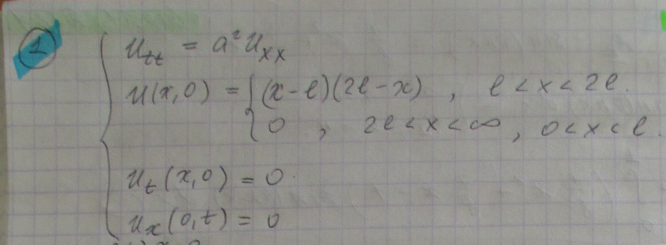 1
u_tt = a² u_xx
u(x,0) = { (x-l)(2l-x) , l < x < 2l.
0 , 2l < x < ∞ , 0 < x < l
u_t(x,0) = 0.
u_x(0,t) = 0